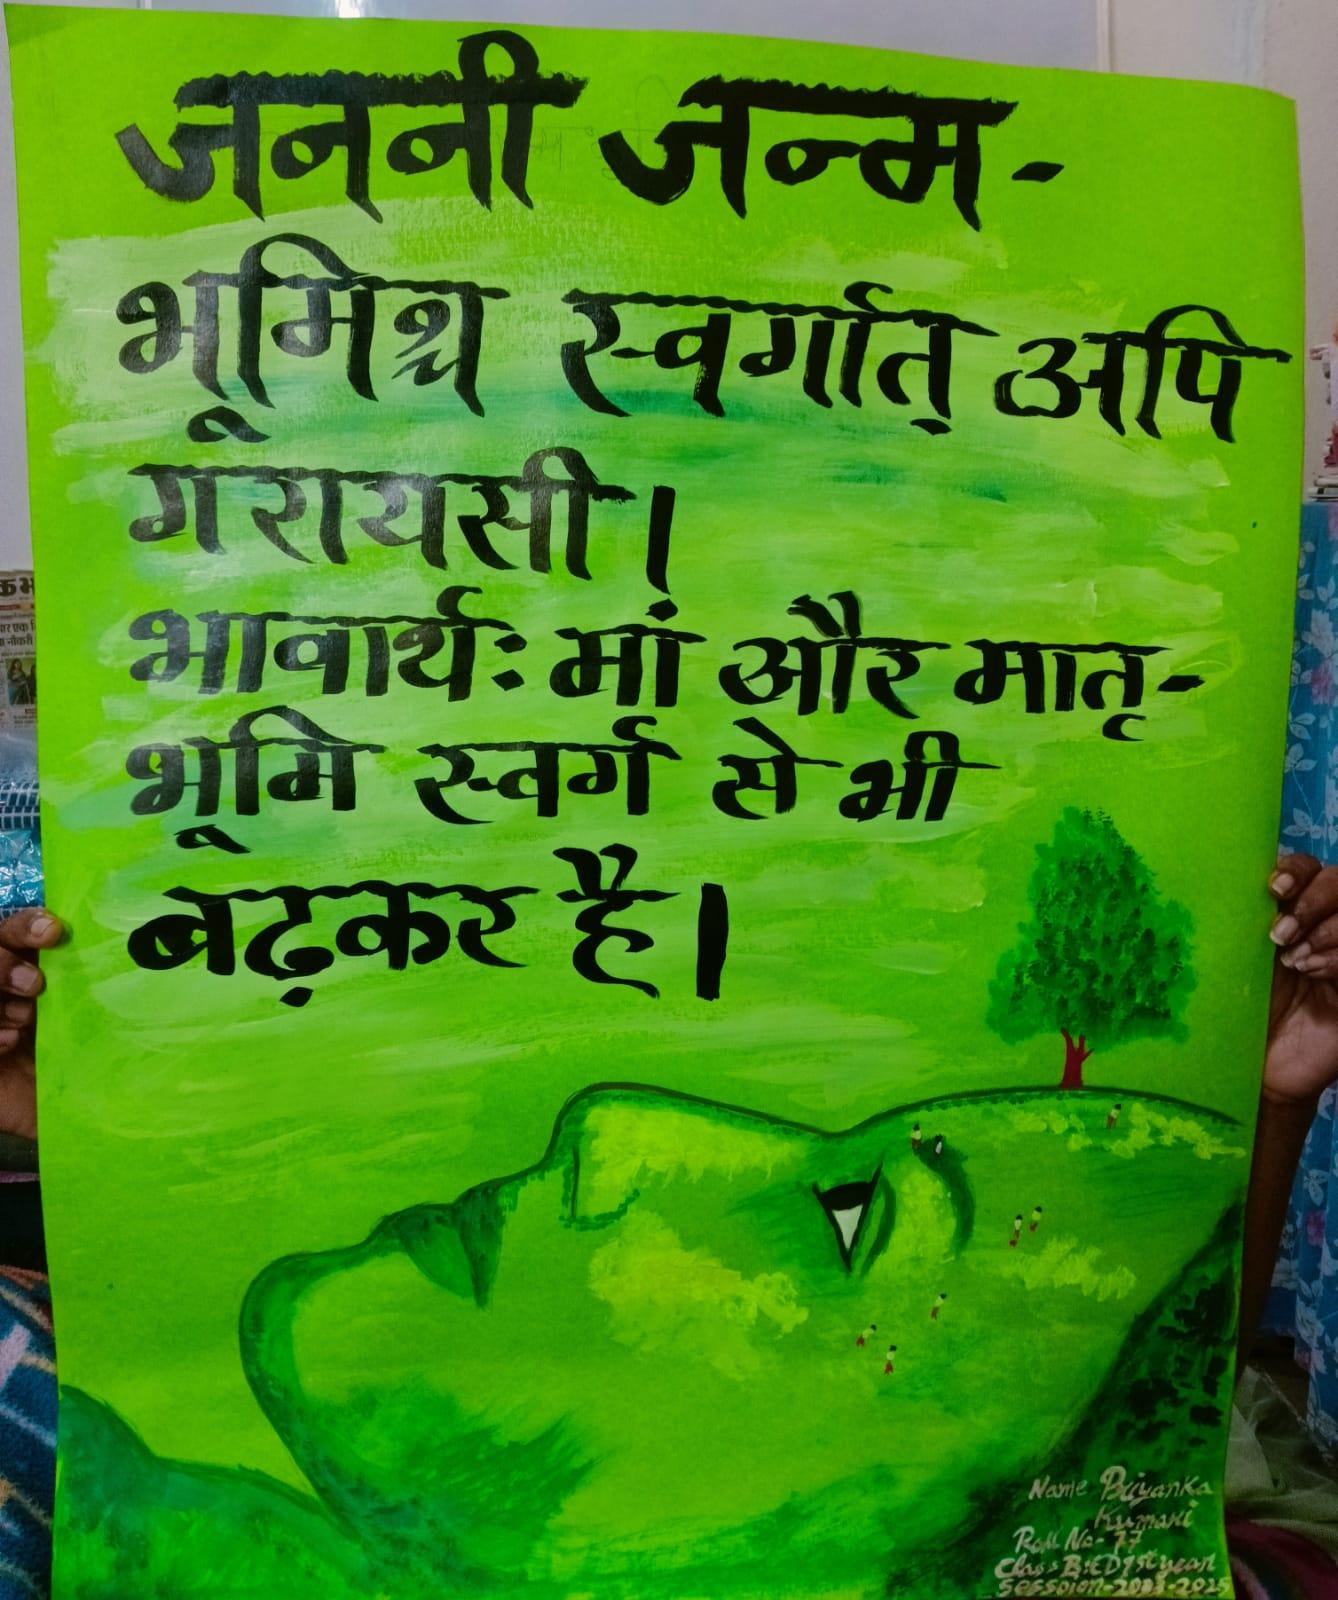 जननी जन्म-
भूमिश्च स्वर्गात् अपि
गरायसी।
भावार्थः मां और मातृ-
भूमि स्वर्ग से भी
बढ़कर है।
Name Priyanka
Kumari
Roll No- 77
Class B.ED 1st year
Sessoion-2023-2025